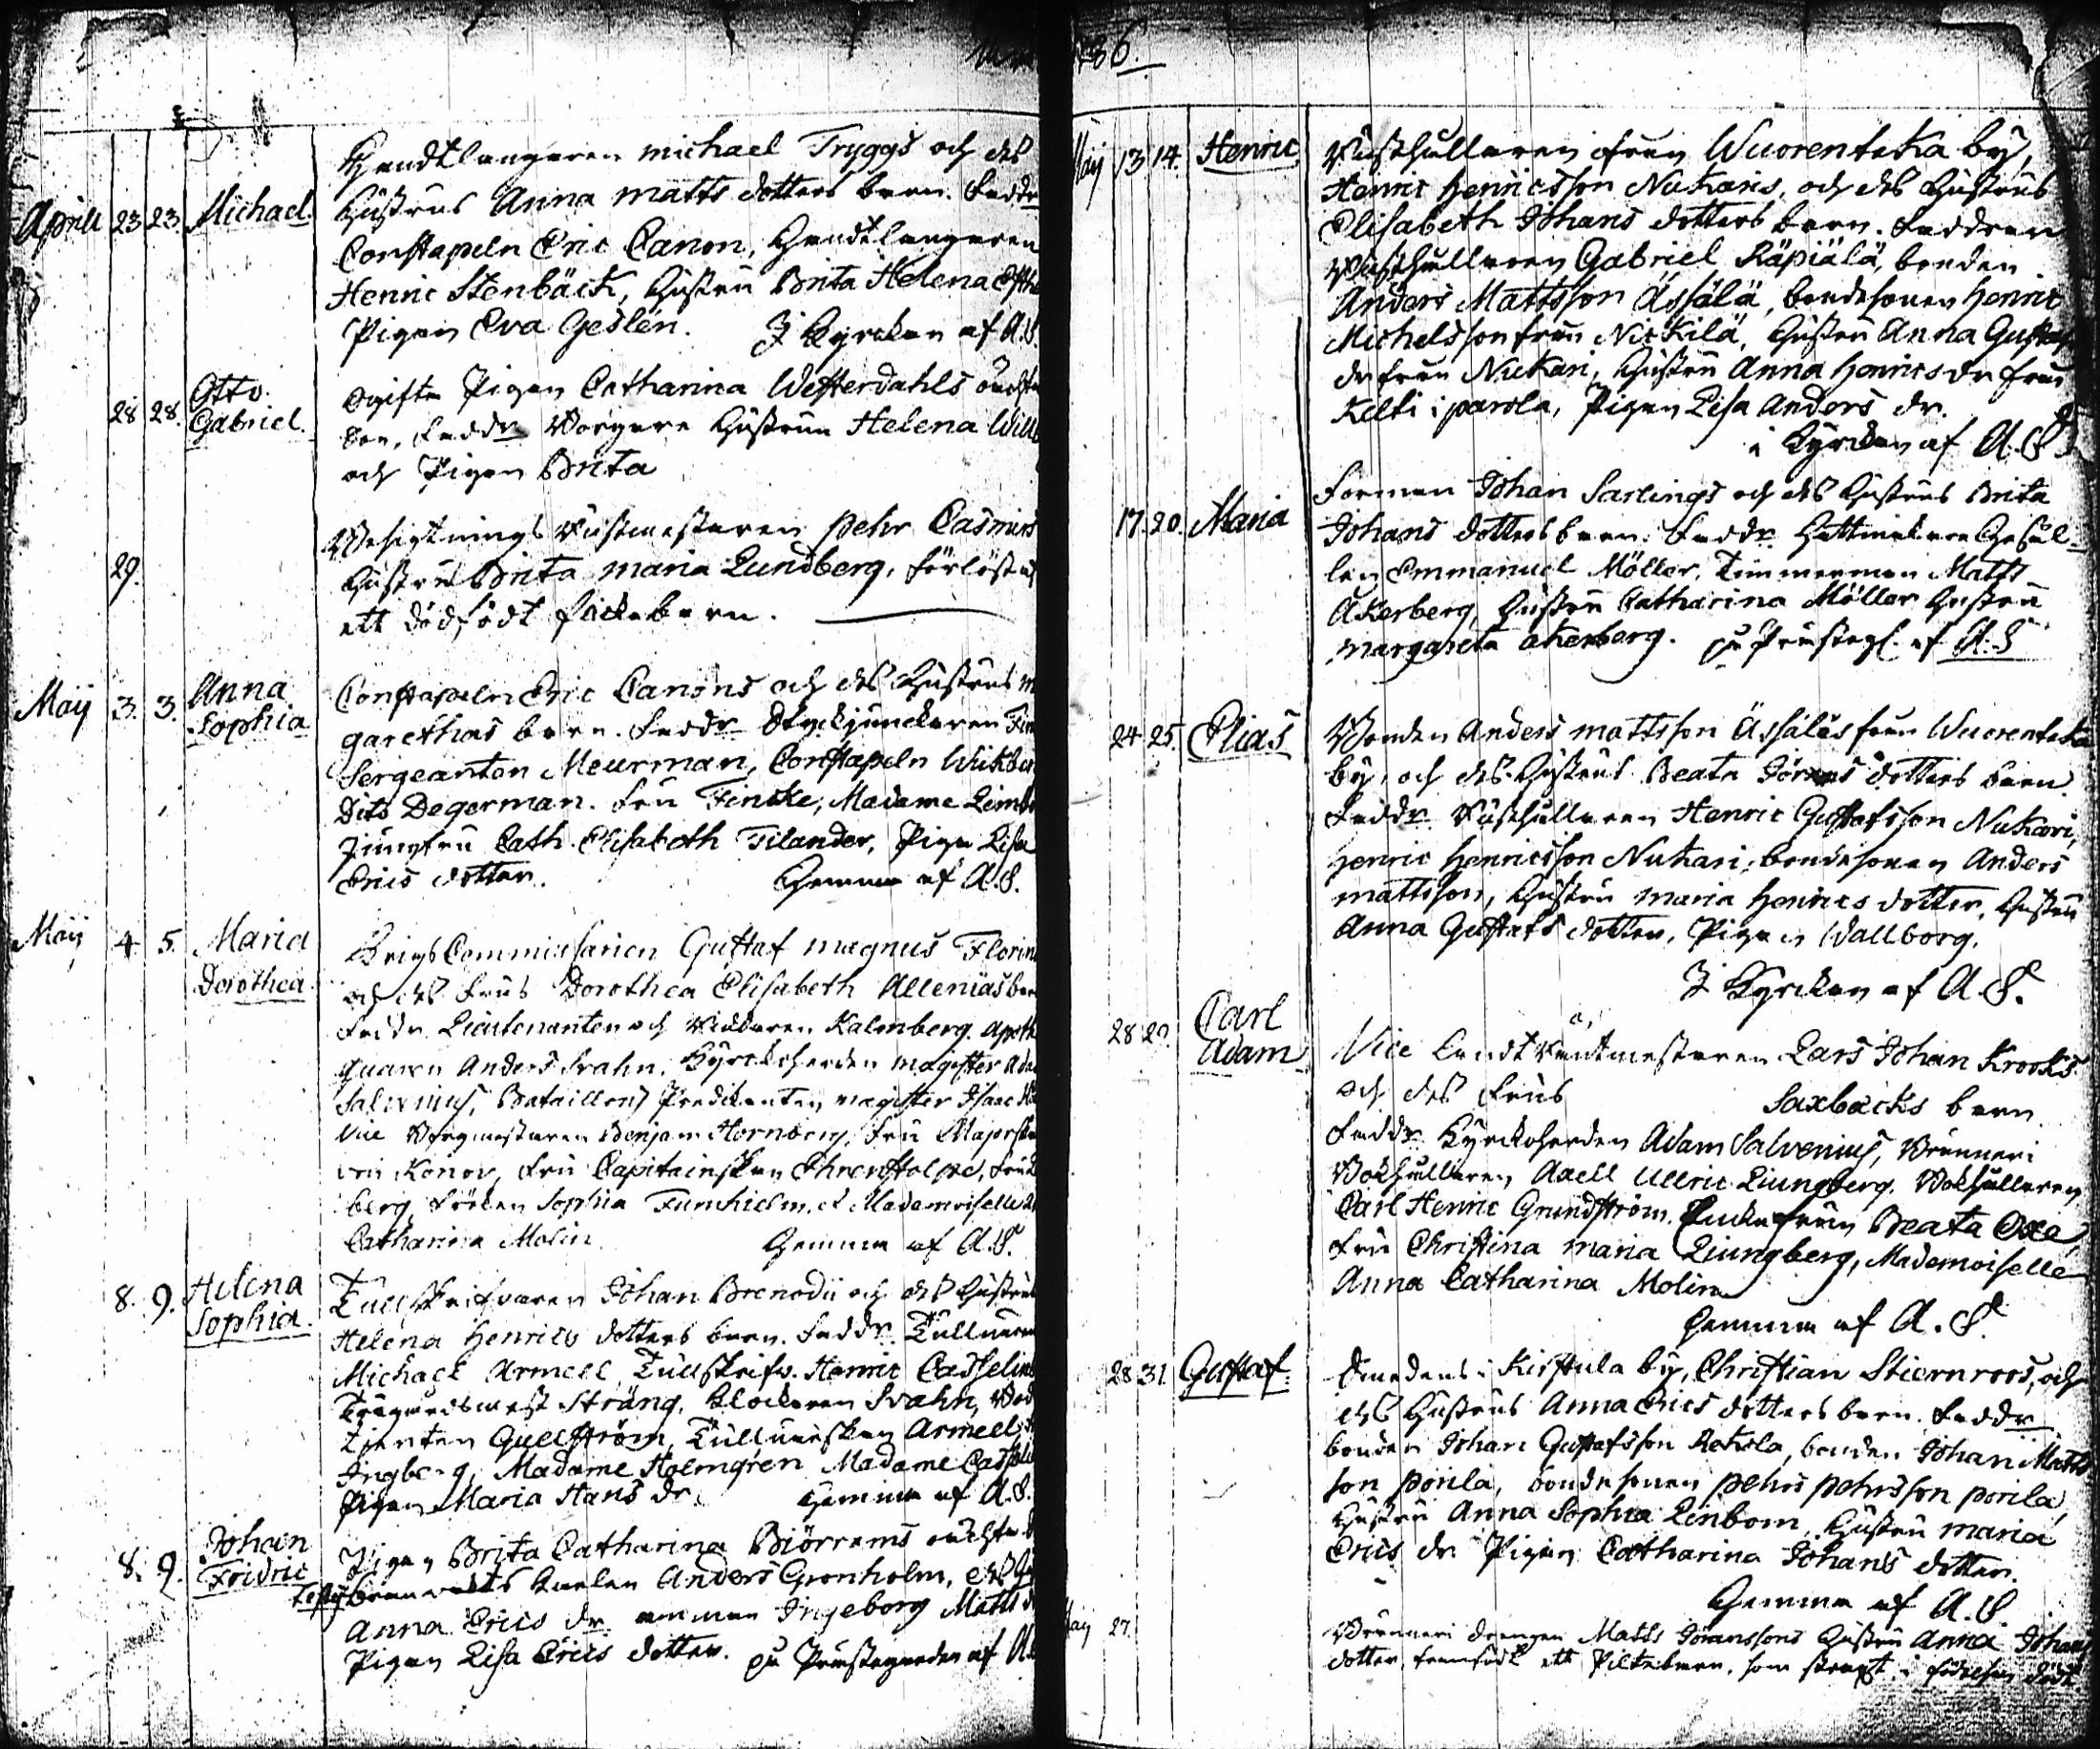 86.
Handtlangaren Michael Tryggs och des
Aprill 23 23. Michael. Hustrus Anna Matts dotters barn. Faddr
Constapeln Eric Canon, Handtlangaren
Henric Stenbäck, Hustru Brita Helena
Pigan Eva Geslén. I Kyrckan af A.S.
28 28. Otto Gabriel. Ogifta Pigan Catharina Westerdahls
barn, Faddr Borgare Hustrun Helena
och Pigan Brita
Besigtnings Rustmestaren Pehr Casmirs
29. Hustru Brita Maria Lundberg, förlöstes
ett dödfödt flickebarn.
Maij 3. 3. Anna Sophia Constapeln Eric Canons och des Hustrus
garethas barn. Faddr Styckjunckaren
Sergeanten Meurman, Constapeln
Dito Degerman. Fru Fincke, Madame
Jungfru Cath. Elisabeth Tilander, Piga Lisa
Erics dotter. Hemma af A.S.
Maij 4. 5. Maria Dorothea. Krigs Commissarien Gustaf Magnus
och des Frus Dorothea Elisabeth Allenias
Faddr Lieutenanten och Riddaren Kalmberg.
quaren Anders Svahn, Kyrckoherden Magister
Salvenius, Bataillons Predikanten Magister Isaac
Vice Borgmestaren Benjam Hornborg, Fru
von Konow, Fru Capitainskan Ehrenstolpe,
berg Fröken Sophia Furuhielm, et Mademoiselle
Catharina Molin. Hemma af A.S.
8. 9. Helena Sophia. Tullskrifvaren Johan Brenodii och des Hustrus
Helena Henrics dotters barn. Faddr
Michael Armell, Tullskrifv. Henric
Sträng, Klockaren Svahn,
tjenten Quellström, Armell,
Ingberg, Madame Holmgren Madame
Pigan Maria Hans dr. Hemma af A.S.
8. 9. Johan Fridric Pigan Brita Catharina Biörrams
Anders Gronholm,
Anna Erics dr Ingeborg Matts
Pigan Lisa Erics dotter. på Prästegården af
Maij 13 14. Henric Rusthållaren ifrån Wuorentaka by,
Henric Henricsson Nukaris, och des Hustrus
Elisabeth Johans dotters barn. Faddrar
Rusthållaren Gabriel Räpiälä, bonden
Anders Mattsson Ässälä, bondesonen Henric
Michelsson från Nickilä, Hustru Anna
dr från Nukari, Hustru Anna Henrics dr från
Kelti i parola, Pigan Lisa Anders dr.
i Kyrckan af A.S.
Johan Sarlings och des Hustrus Brita
17. 20. Maria Johans dotters barn. Faddr Hattmakare Gesäl-
len Emmanuel Möller, Timmerman Matts
Åkerberg, Hustru Catharina Möller Hustru
Margareta Åkerberg. på Prästeg. af A.S.
24 25. Elias Bonden Anders Mattsson Ässäläs från Wuorentaka
by, och des Hustrus Beata Jörans dotters barn.
Faddr Rusthållaren Henric Gustafsson Nukari,
Henric Henricsson Nukari, bondesonen Anders
Mattsson, Hustru Maria Henrics dotter, Hustru
Anna Gustafs dotter, Pigan Wallborg.
I Kyrckan af A.S.
28 29. Carl Adam Vice Landt Räntmestaren Lars Johan Krooks
och des Frus Saxbäcks barn
Faddr Kyrckoherden Adam Salvenius, Bränneri
Bokhållaren Axell Ullric Liungberg, Bokhållaren
Carl Henric Grundström, Beata Oxe
Fru Christina Maria Liungberg, Mademoiselle
Anna Catharina Molin
Hemma af A.S.
28 31 Gustaf. Smedens i Kirstula by, Christian Stiernroos, och
des Hustrus Anna Erics dotters barn. Faddr
bonden Johan Gustafsson bonden Johan Matts
son Porila, bondesonen Pehr Pehrsson Porila,
Hustru Anna Sophia Linbom, Hustru Maria
Erics dr Pigan Catharina Johans dotter.
Hemma af A.S.
Maij 27. Bränneri drengen Matts Göranssons Hustru Anna Johans
dotter, framfödt ett Piltebarn, som straxt i födelsen dödt